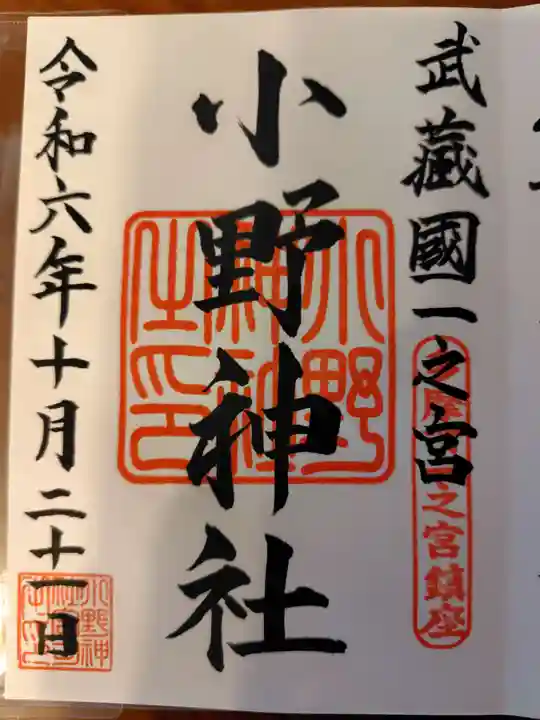 武藏國一之宮
之宮鎮座
小野神社
小野神社之印
令和六年十月二十一日